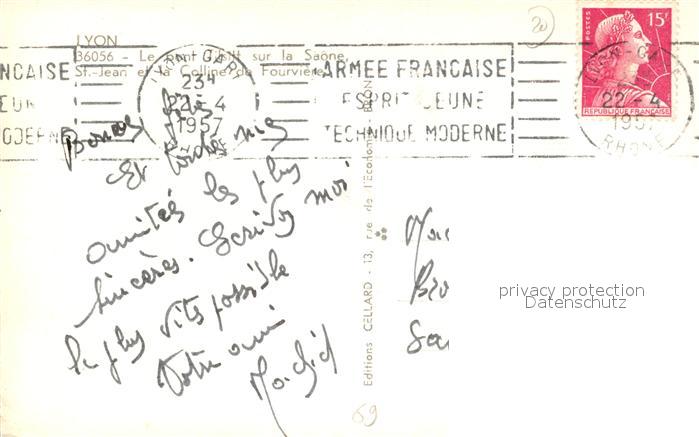 LYON
36056 - Le Pont Gillet sur la Saône
St.-Jean et la Colline de Fourvière
LYON-GARE
23H
22-4
1957
RHONE
NÇAISE
EUNE
MODERNE
ARMÉE FRANÇAISE
ESPRIT JEUNE
TECHNIQUE MODERNE
POSTES
15F
REPUBLIQUE FRANÇAISE
LYON-GARE
22-4
1957
RHONE
20
Bonnes
et toutes mes
amitiés les plus
sincères. Ecrivez moi
le plus vite possible
Votre ami
Rachid
Editions CELLARD - 13, rue de l'Economie - BRON
Bro
69
privacy protection
Datenschutz